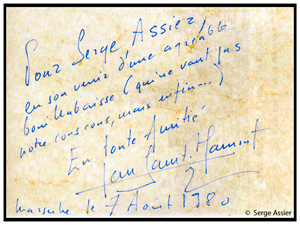 Pour Serge Assier
en souvenir d'une agréable
bouillabaisse (qui ne vaut pas
notre couscous, mais enfin...)
En toute Amitié
Jean
Marseille le 7 Août 1980
© Serge Assier